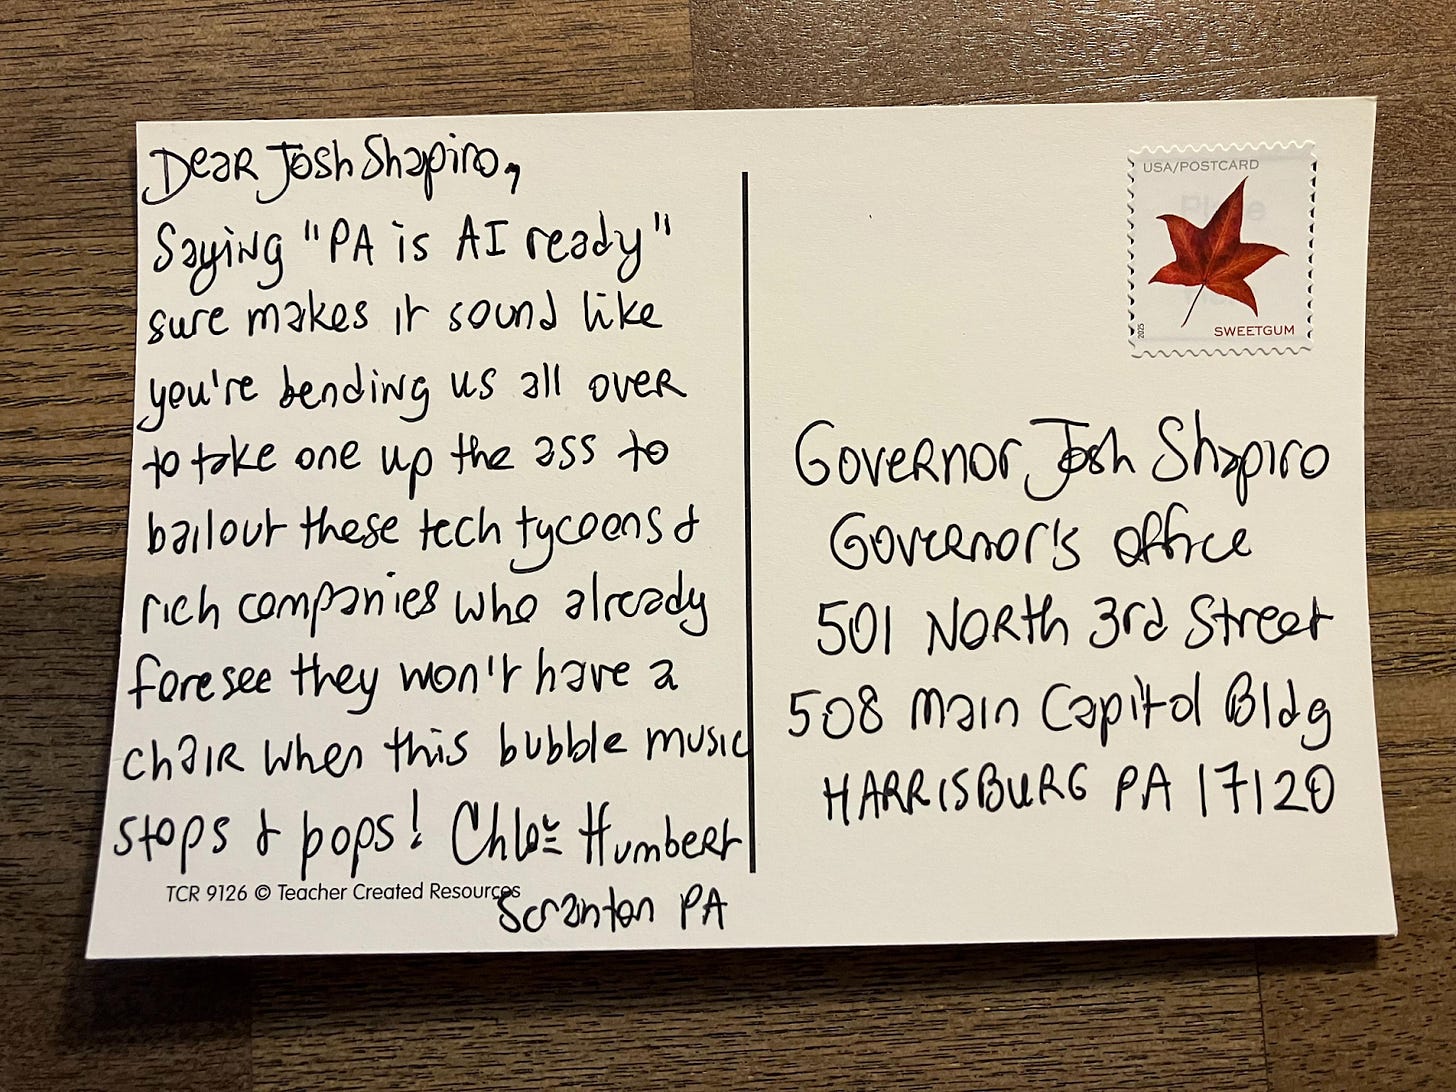 Dear Josh Shapiro,
Saying "PA is AI ready"
sure makes it sound like
you're bending us all over
to take one up the ass to
bailout these tech tycoons &
rich companies who already
foresee they won't have a
chair when this bubble music
stops & pops! Chloe Humbert
TCR 9126 © Teacher Created Resources
Scranton PA
USA/POSTCARD
2025
SWEETGUM
Governor Josh Shapiro
Governor's office
501 North 3rd Street
508 Main Capitol Bldg
HARRISBURG PA 17120